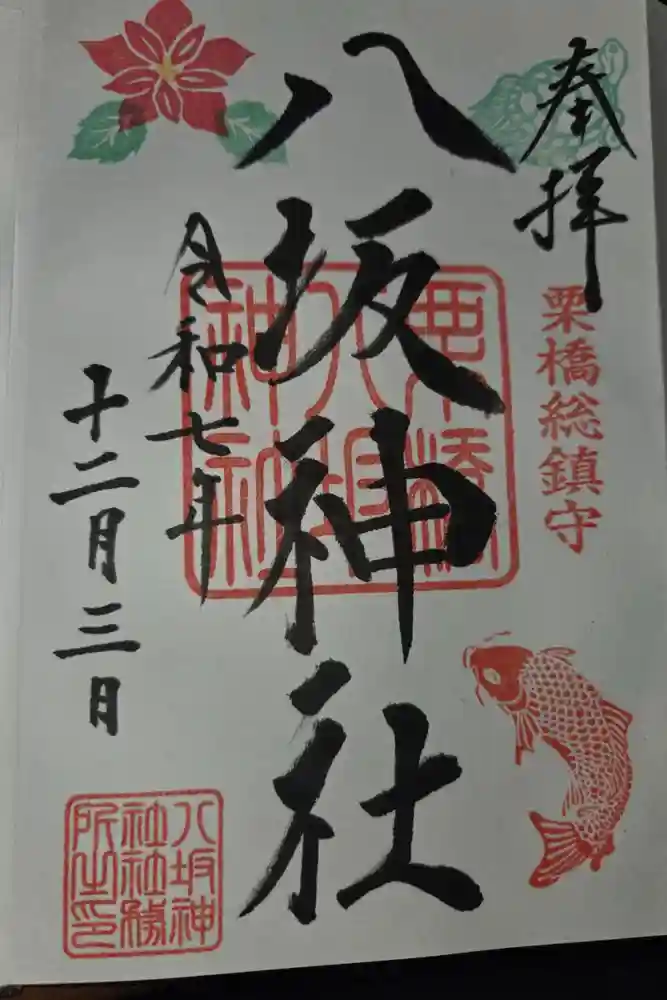 奉拝
栗橋総鎮守
八坂神社
令和七年
十二月三日
栗橋
八坂
神社
八坂神
社社務
所之印